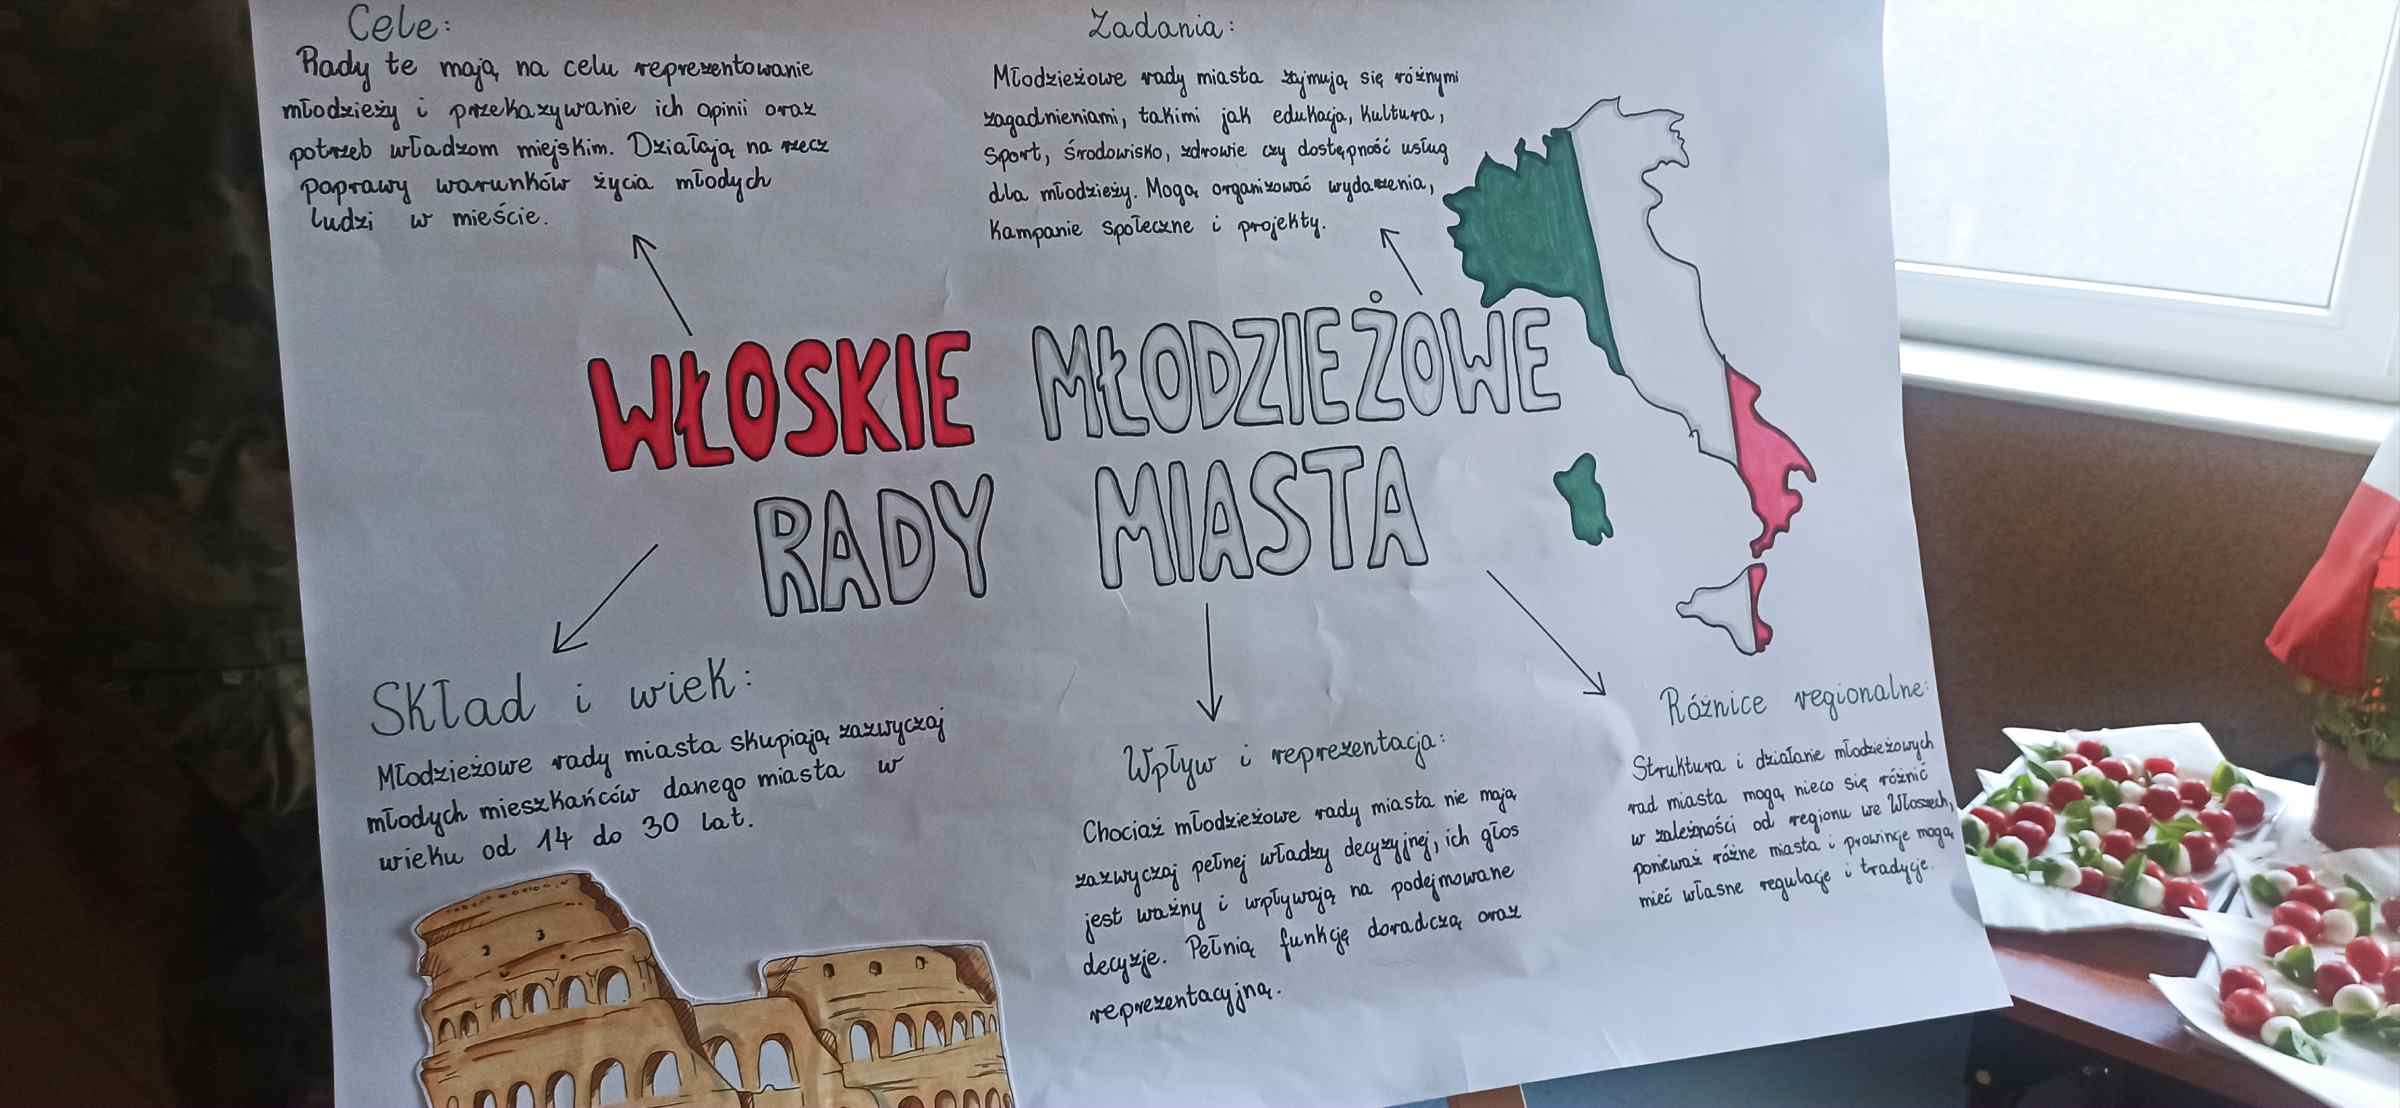 Cele:
Rady te mają na celu reprezentowanie
młodzieży i przekazywanie ich opinii oraz
potrzeb władzom miejskim. Działają na rzecz
poprawy warunków życia młodych
ludzi w mieście.
Zadania:
Młodzieżowe rady miasta zajmują się różnymi
zagadnieniami, takimi jak edukacja, kultura,
sport, środowisko, zdrowie czy dostępność usług
dla młodzieży. Mogą organizować wydarzenia,
kampanie społeczne i projekty.
WŁOSKIE MŁODZIEŻOWE
RADY MIASTA
Skład i wiek:
Młodzieżowe rady miasta skupiają zazwyczaj
młodych mieszkańców danego miasta w
wieku od 14 do 30 lat.
Wpływ i reprezentacja:
Chociaż młodzieżowe rady miasta nie mają
zazwyczaj pełnej władzy decyzyjnej, ich głos
jest ważny i wpływają na podejmowane
decyzje. Pełnią funkcję doradczą oraz
reprezentacyjną.
Różnice regionalne:
Struktura i działanie młodzieżowych
rad miasta mogą nieco się różnić
w zależności od regionu we Włoszech,
ponieważ różne miasta i prowincje mogą
mieć własne regulacje i tradycje.